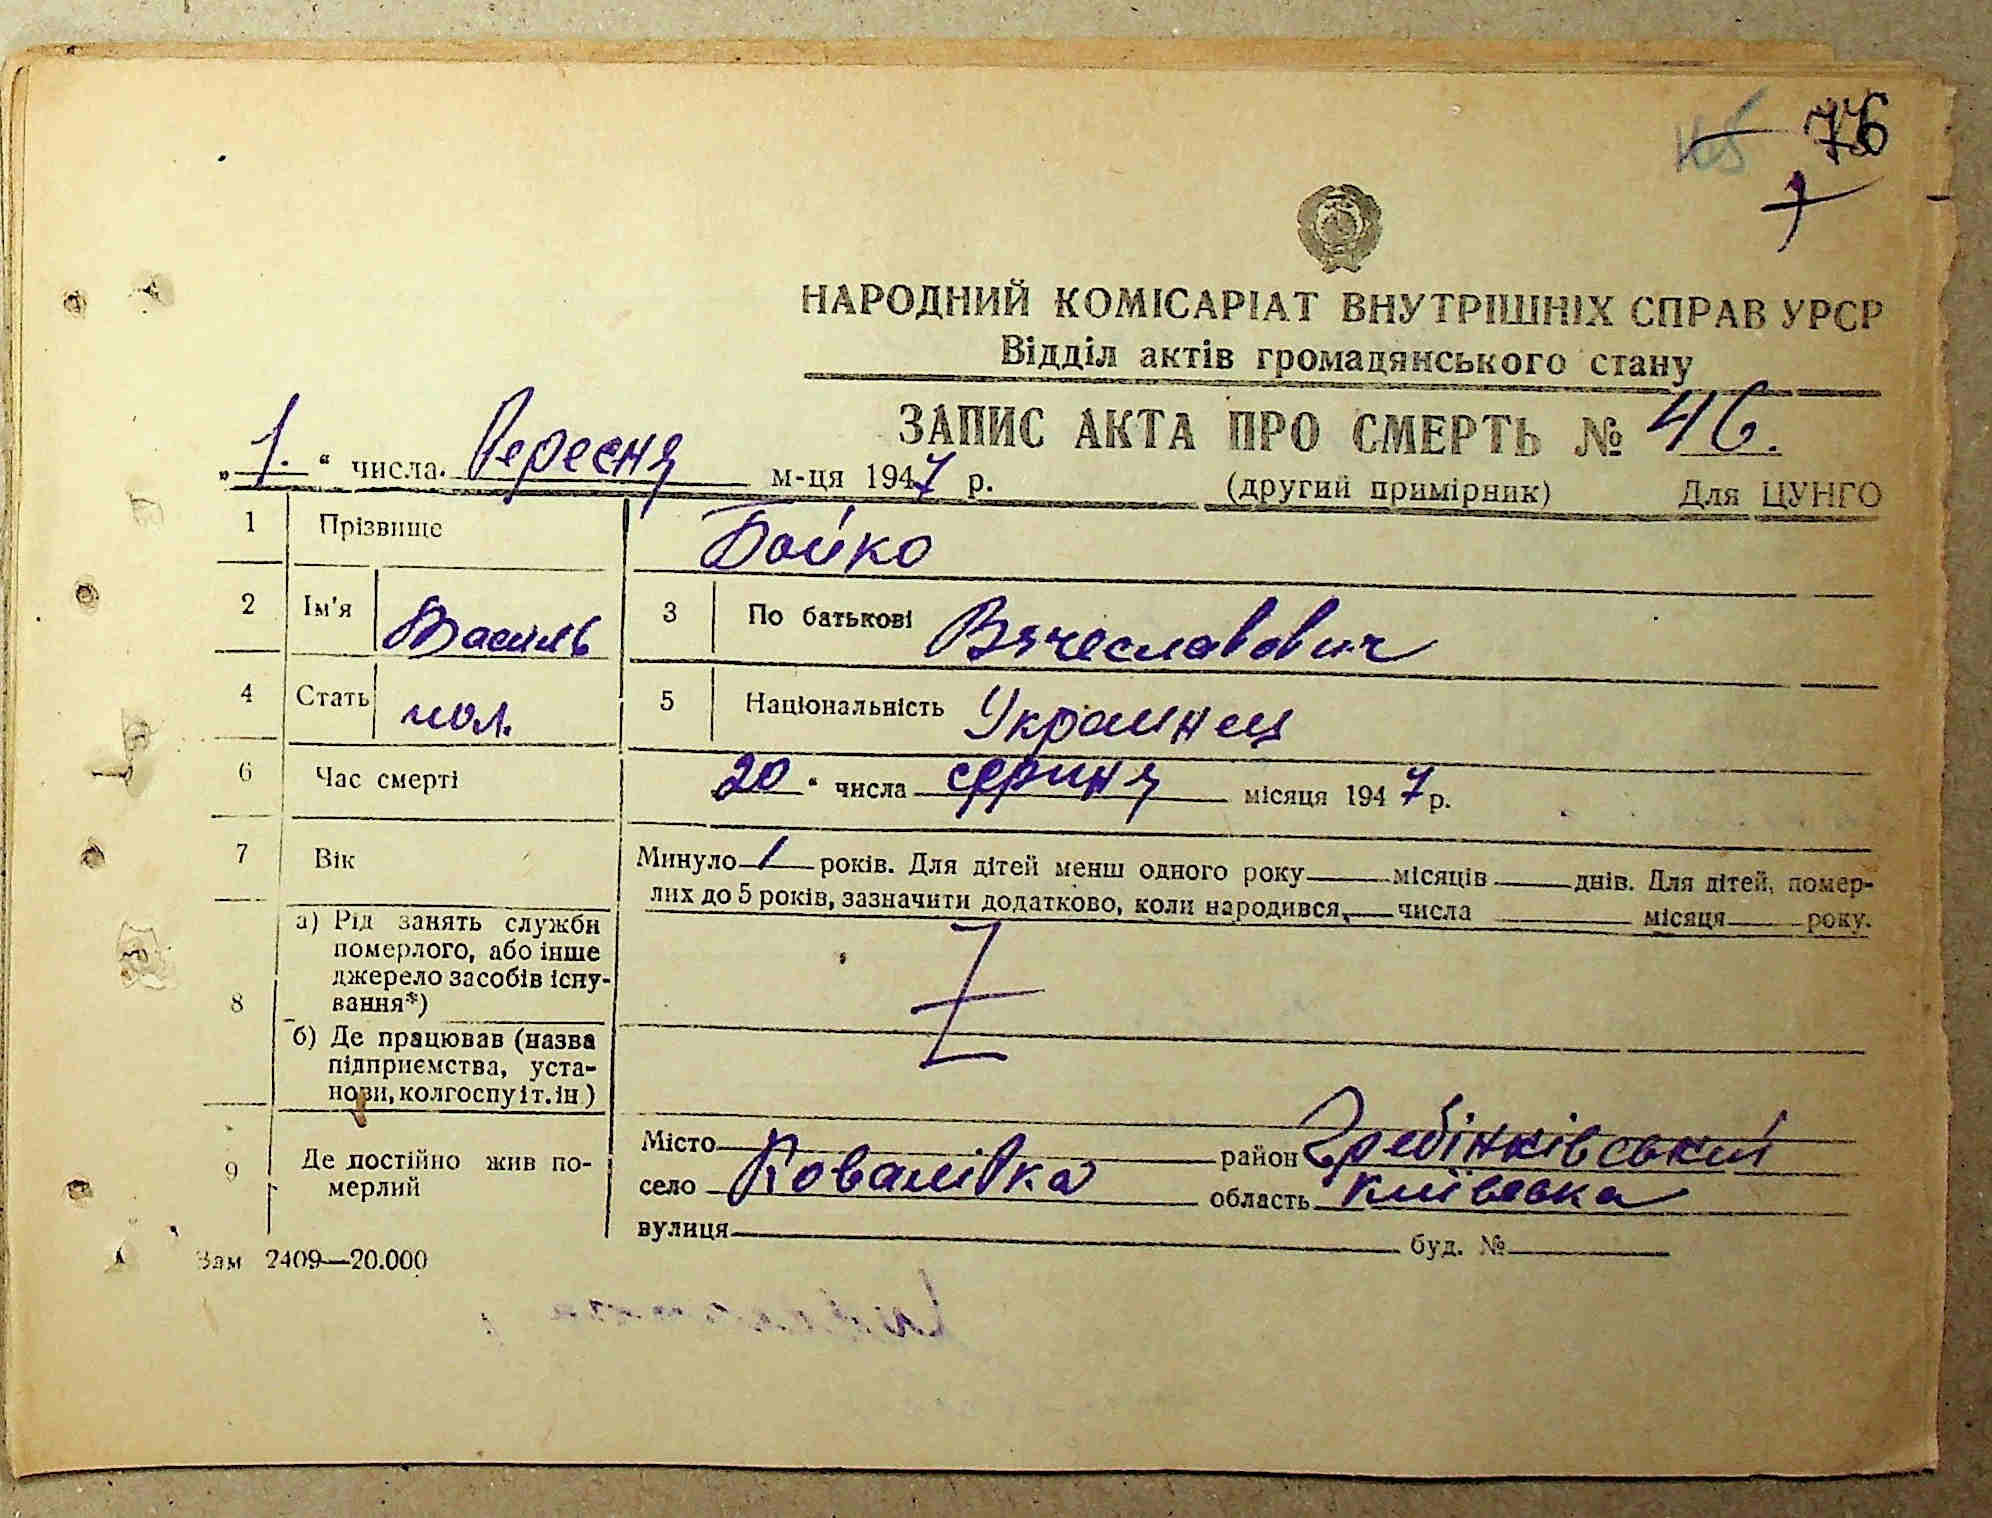 76
НАРОДНИЙ КОМІСАРІАТ ВНУТРІШНІХ СПРАВ УРСР
Відділ актів громадянського стану
ЗАПИС АКТА ПРО СМЕРТЬ № 46.
„1.“ числа Вересня м-ця 1947 р. (другий примірник) Для ЦУНГО
1 Прізвище Бойко
2 Ім'я Василь 3 По батькові Вячеславович
4 Стать чол. 5 Національність Украинец
6 Час смерті 20 “ числа серпня місяця 1947 р.
7 Вік Минуло 1 років. Для дітей менш одного року місяців днів. Для дітей, помер-
лих до 5 років, зазначити додатково, коли народився, числа місяця року.
8 а) Рід занять служби
померлого, або інше
джерело засобів існу-
вання*)
б) Де працював (назва
підприємства, уста-
нови, колгоспу і т. ін)
9 Де постійно жив по-
мерлий
Місто район Гребінківський
село Ковалівка область Київська
вулиця буд. №
Зам 2409—20.000